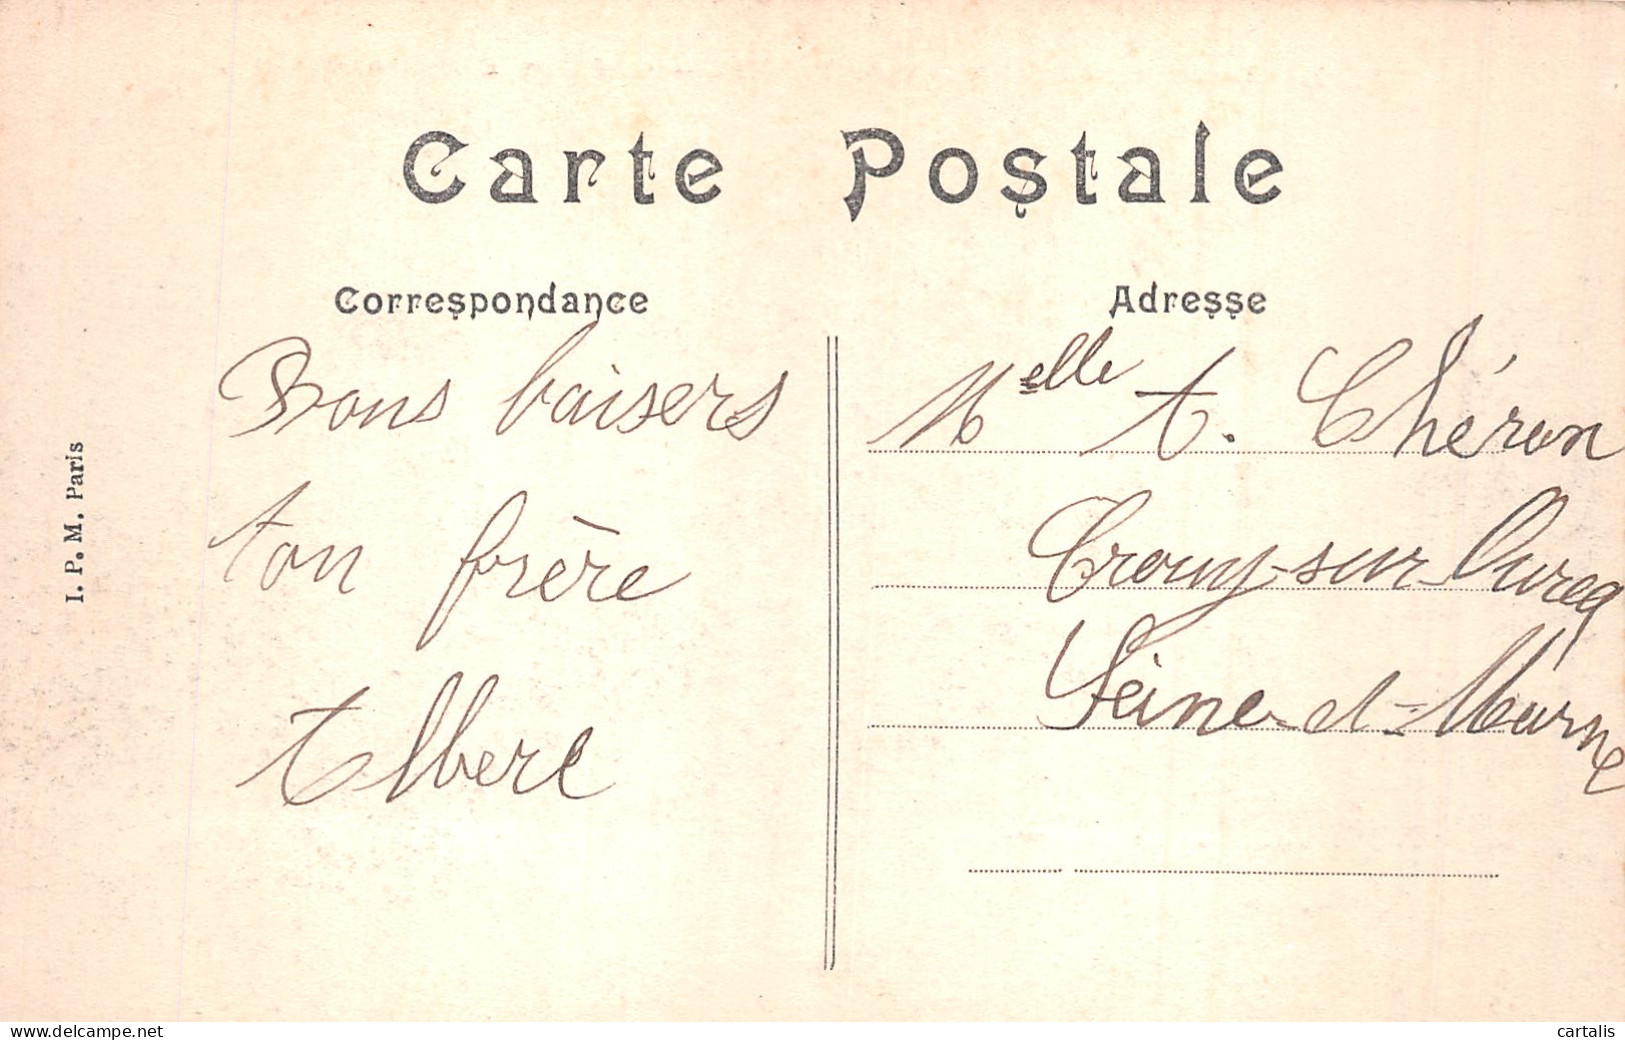 Carte Postale
Correspondance
Bons baisers
ton frère
Albert
Adresse
Melle A. Chéron
Crouy-sur-Ourcq
Seine-et-Marne
I. P. M. Paris
www.delcampe.net
cartalis